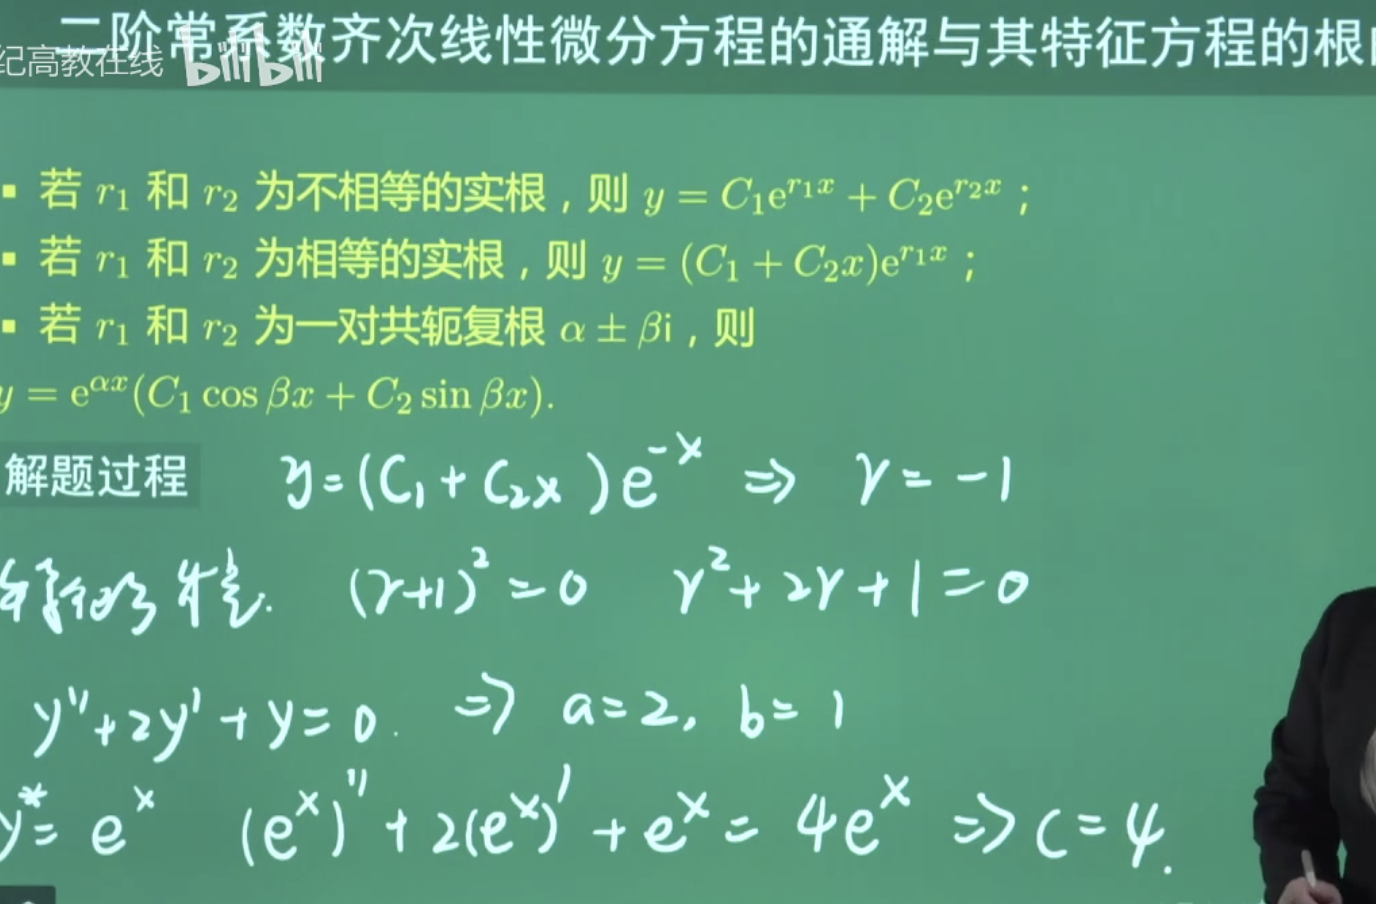 二阶常系数齐次线性微分方程的通解与其特征方程的根
纪高教在线 bilibili
▪ 若 r₁ 和 r₂ 为不相等的实根，则 y = C₁e^{r₁x} + C₂e^{r₂x}；
▪ 若 r₁ 和 r₂ 为相等的实根，则 y = (C₁ + C₂x)e^{r₁x}；
▪ 若 r₁ 和 r₂ 为一对共轭复根 α ± βi，则
y = e^{αx}(C₁ cos βx + C₂ sin βx).
解题过程 y=(C₁+C₂x)e^{-x} ⇒ r=-1
(r+1)²=0 r²+2r+1=0
y''+2y'+y=0. ⇒ a=2, b=1
y*=e^x (e^x)''+2(e^x)'+e^x=4e^x ⇒ c=4.